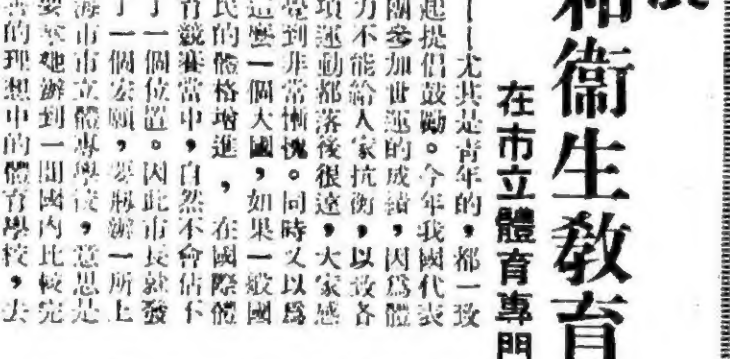 和衞生教育
在市立體育專門
——尤其是青年的，都一致
起提倡鼓勵。今年我國代表
團參加世運的成績，因爲體
力不能給人家抗衡，以致各
項運動都落後很遠，大家感
覺到非常慚愧。同時又以爲
這麼一個大國，如果一般國
民的體格增進，在國際體
育競賽當中，自然不會佔不
了一個位置。因此市長就發
了一個宏願，要將辦一所上
海市市立體專學校，意思是
要她辦到一間國內比較完
善的理想中的體育學校，去